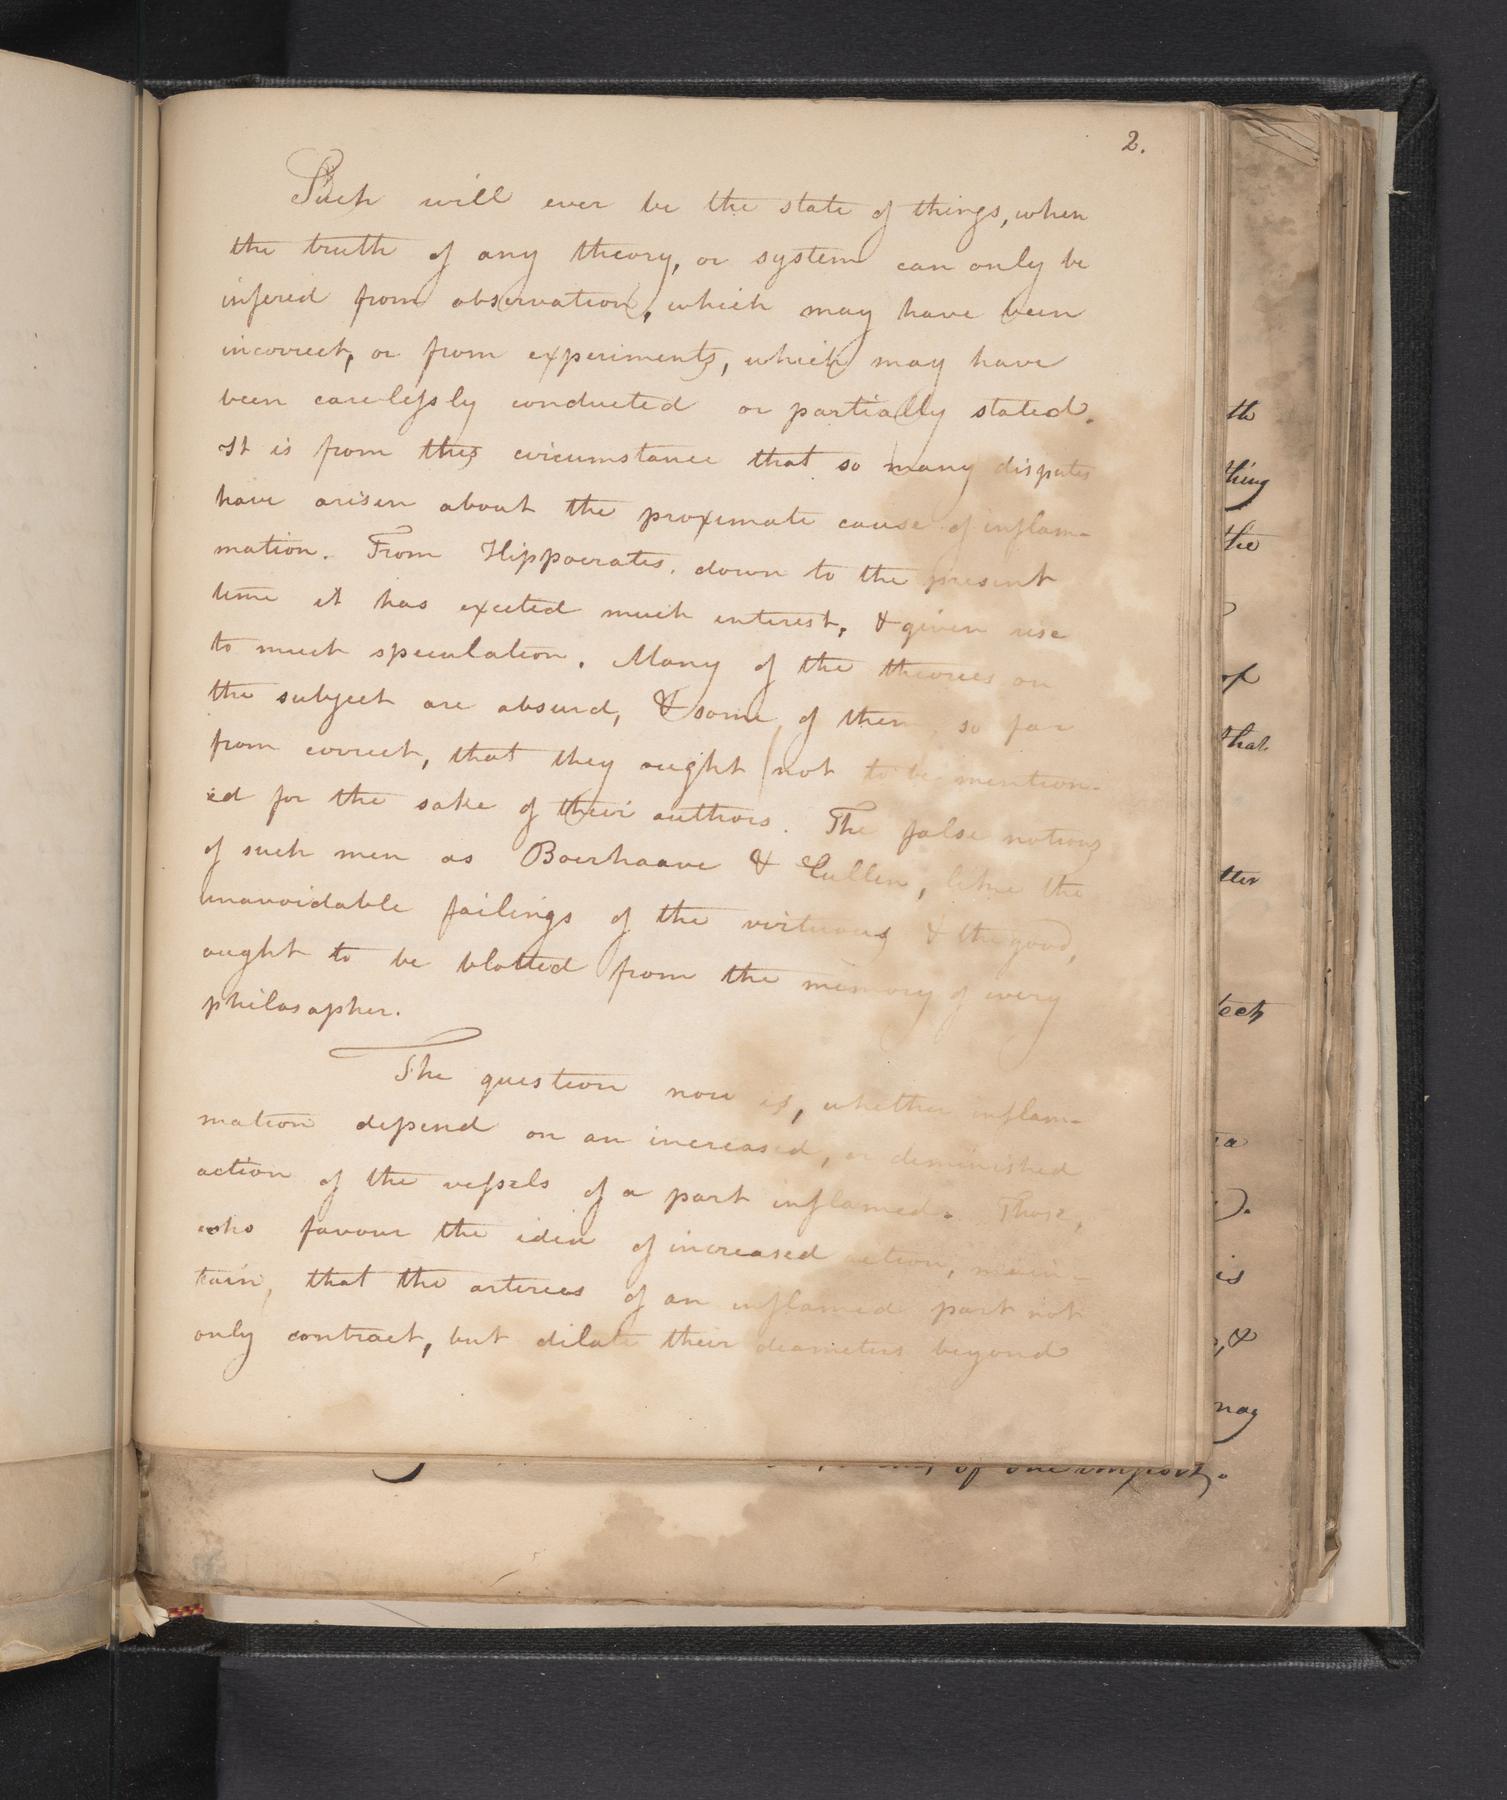 2.
Such will ever be the state of things, when
the truth of any theory, or system can only be
infered from observation, which may have been
incorrect, or from experiments, which may have
been carelessly conducted or partially stated.
It is from this circumstance that so many disputes
have arisen about the proximate cause of inflam-
mation. From Hippocrates, down to the present
time it has excited much interest, & given rise
to much speculation. Many of the theories on
the subject are absurd, & some of them so far
from correct, that they ought not to be mention-
ed for the sake of their authors. The false notions
of such men as Boerhaave & Cullen, like the
unavoidable failings of the virtuous & the good,
ought to be blotted from the memory of every
philosopher.
The question now is, whether inflam-
mation depend on an increased, or diminished
action of the vessels of a part inflamed. Those,
who favour the idea of increased action, main-
tain, that the arteries of an inflamed part not
only contract, but dilate their diameters beyond
th
thing
the
of
that
tter
is
, &
may
of one import.